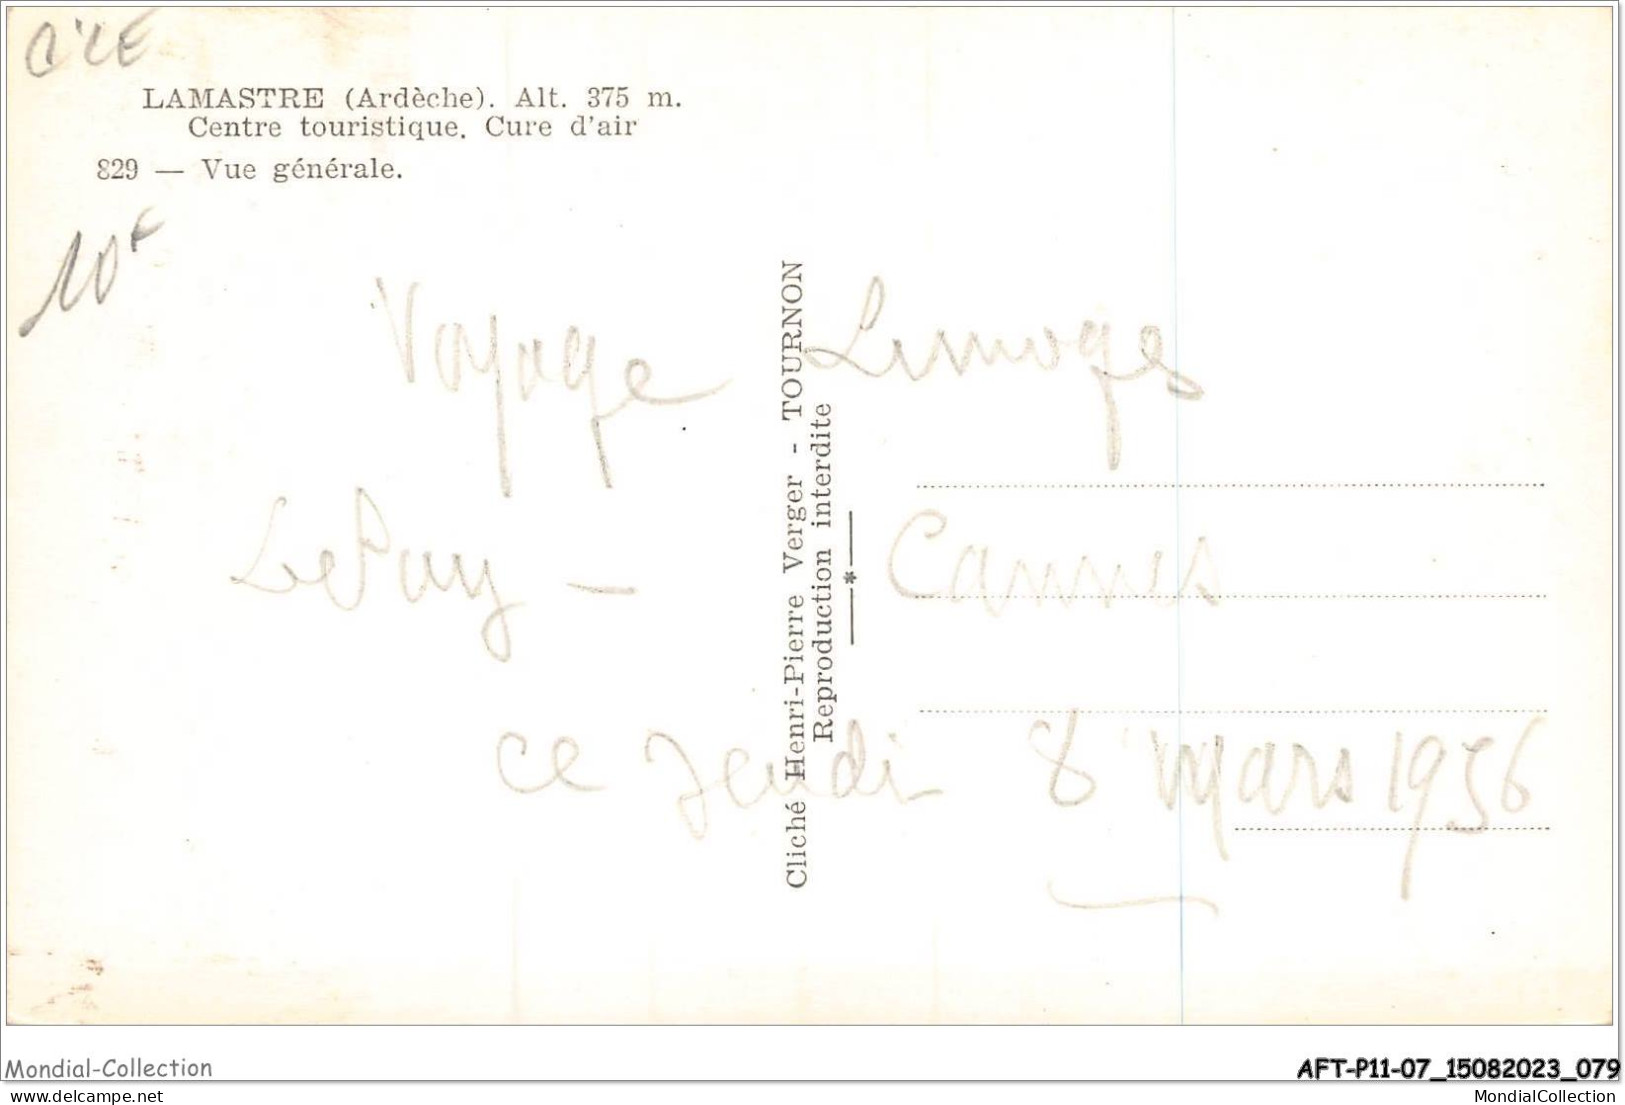 LAMASTRE (Ardèche). Alt. 375 m.
Centre touristique. Cure d'air
829 — Vue générale.
10F
Voyage Limoges
Le Puy — Cannes
ce Jeudi 8 mars 1956
Cliché Henri-Pierre Verger - TOURNON
Reproduction interdite
Mondial-Collection
AFT-P11-07_15082023_079
delcampe.net
MondialCollection